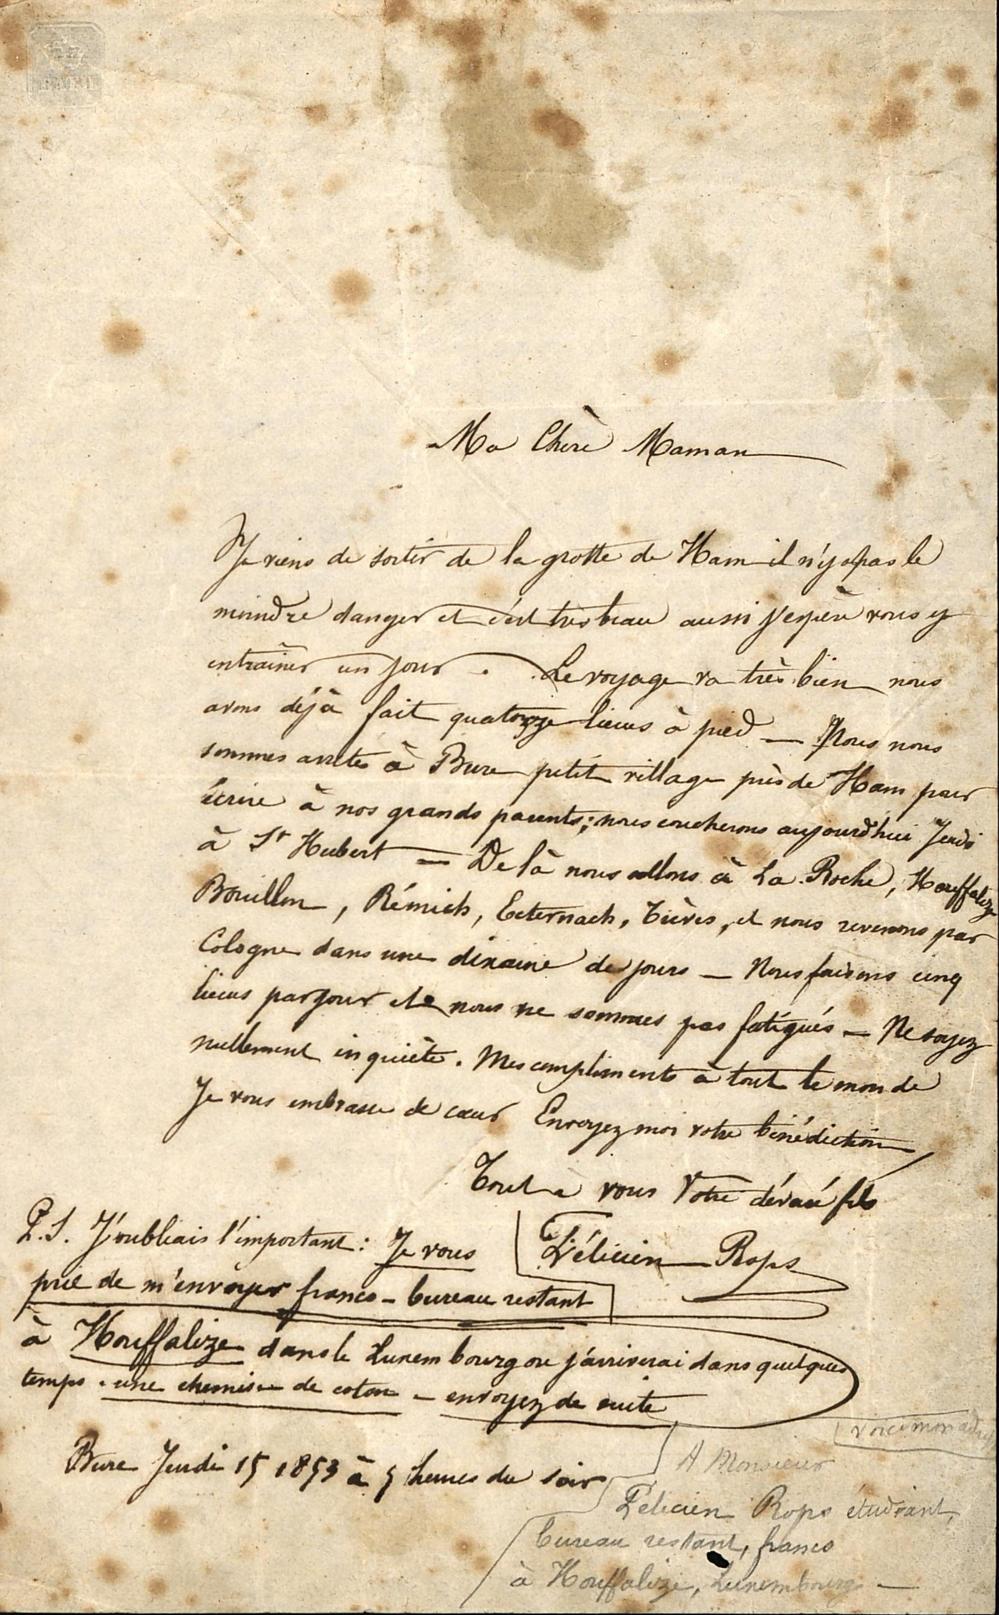 Ma Chère Maman
Je viens de sortir de la grotte de Ham il n'y a pas le
moindre danger et c'est très beau aussi j'espère vous y
entraîner un jour . Le voyage va très bien nous
avons déjà fait quatorze lieues à pied — Nous nous
sommes arrêtés à Bure petit village près de Ham pour
écrire à nos grands parents; nous coucherons aujourd'hui Jeudi
à St Hubert — De là nous allons à La Roche, Houffalize
Bouillon, Rémich, Ecternach, Trèves, et nous revenons par
Cologne dans une dixaine de jours — Nous faisons cinq
lieues par jour et nous ne sommes pas fatigués — Ne soyez
nullement inquiète. Mes compliments à tout le monde
Je vous embrasse de cœur Envoyez moi votre bénédiction
Tout a vous Votre dévoué fils
Félicien Rops
P.S. J'oubliais l'important: Je vous
prie de m'envoyer franco – bureau restant
à Houffalize dans le Luxembourg ou j'arriverai dans quelques
temps – une chemise de coton – envoyez de suite
Bure Jeudi 15 1853 à 5 heures du soir
voici mon adresse
A Monsieur
Félicien Rops étudiant,
bureau restant, franco
à Houffalize, Luxembourg —